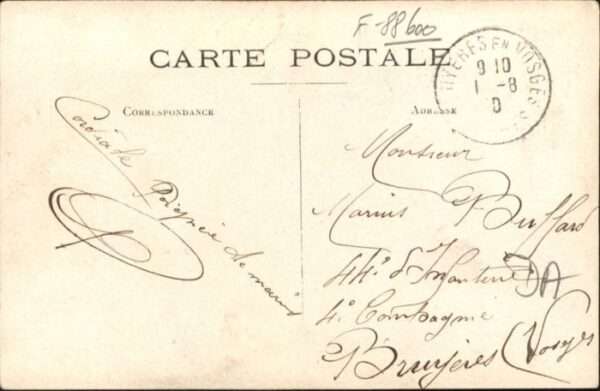 F-88600
CARTE POSTALE
BRUYERES EN VOSGES
9 10
1 -8
CORRESPONDANCE
ADRESSE
Cordiale
Poignée de main
Monsieur
Marius Buffard
44e d'Infanterie
4e Compagnie
Bruyères (Vosges)